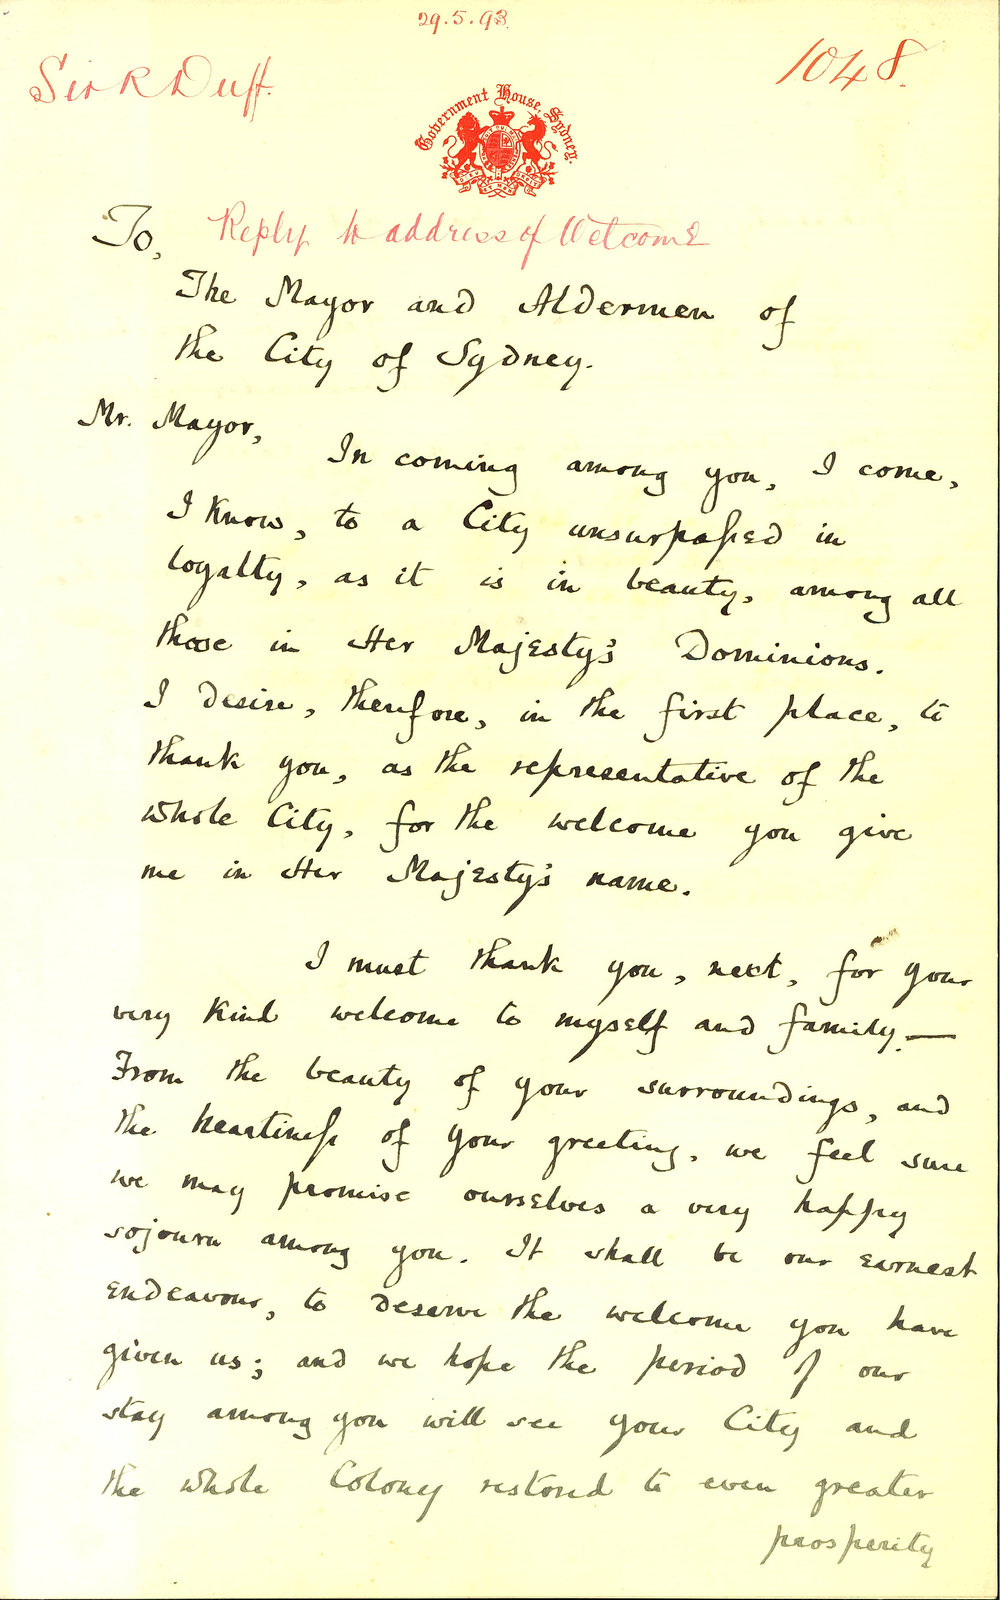 29.5.93.
Sir R Duff.
1048.
Government House, Sydney.
To,
Reply to address of Welcome
The Mayor and Aldermen of
the City of Sydney.
Mr. Mayor,
In coming among you, I come,
I know, to a City unsurpassed in
loyalty, as it is in beauty, among all
those in Her Majesty's Dominions.
I desire, therefore, in the first place, to
thank you, as the representative of the
whole City, for the welcome you give
me in Her Majesty's name.
I must thank you, next, for your
very kind welcome to myself and family.—
From the beauty of your surroundings, and
the heartiness of your greeting, we feel sure
we may promise ourselves a very happy
sojourn among you. It shall be our earnest
endeavour, to deserve the welcome you have
given us; and we hope the period of our
stay among you will see your City and
the whole Colony restored to even greater
prosperity